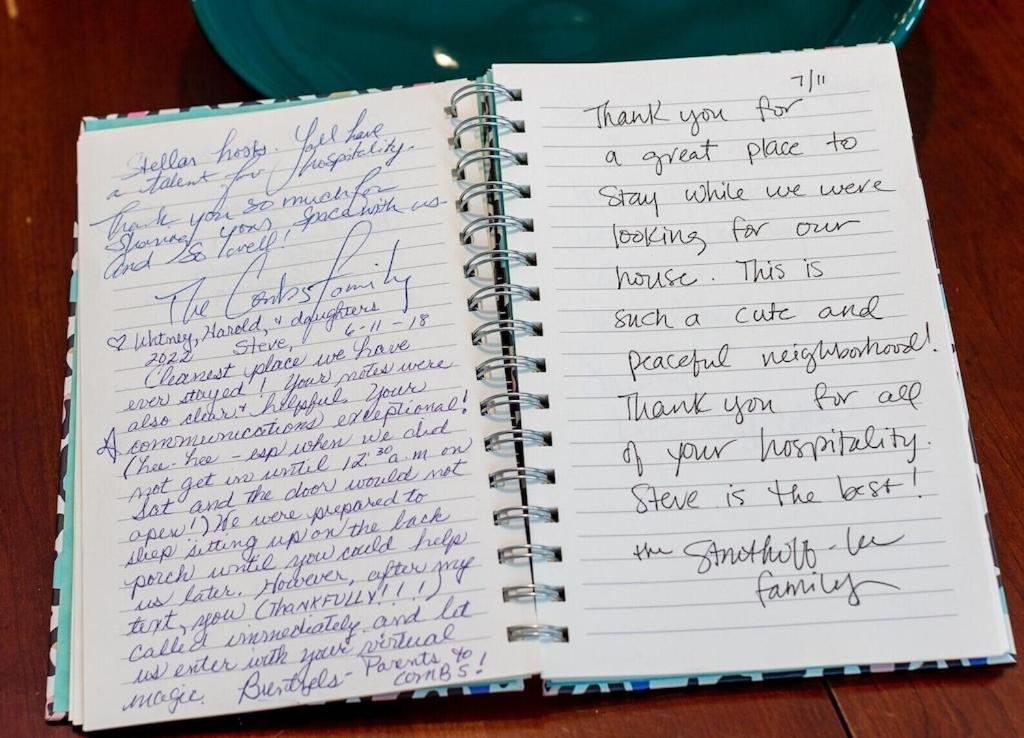 Stellar hosts. Yall have
a talent for hospitality.
Thank you so much for
Sharing your space with us
and so well!
The Combs Family
♡ Whitney, Harold, + daughters
2022 Steve, 6-11-18
Cleanest place we have
ever stayed! Your notes were
also clear + helpful. Your
communications exceptional!
(hee-hee - esp when we did
not get in until 12:30 a.m on
Sat and the door would not
open!) We were prepared to
sleep sitting up on the back
porch until you could help
us later. However, after my
text, you (THANKFULLY!!!!)
called immediately and let
us enter with your virtual
magic. Brentzels - Parents to
COMBS!
7/11
Thank you for
a great place to
stay while we were
looking for our
house. This is
such a cute and
peaceful neighborhood!
Thank you for all
of your hospitality.
Steve is the best!
the
family